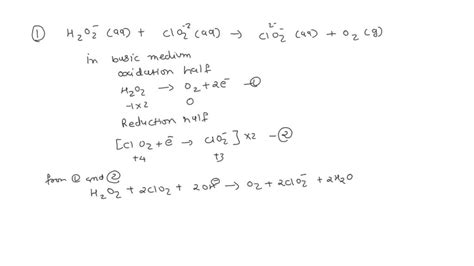 ① H₂O₂⁻ (aq) + ClO₂⁻² (aq) → ClO₂²⁻ (aq) + O₂ (g)
in basic medium
oxidation half
H₂O₂ → O₂ + 2e⁻ —①
-1×2 0
Reduction half
[ClO₂ + e⁻ → ClO₂⁻] ×2 —②
+4 +3
from ① and ②
H₂O₂ + 2ClO₂ + 2OH⊖ → O₂ + 2ClO₂⁻ + 2H₂O